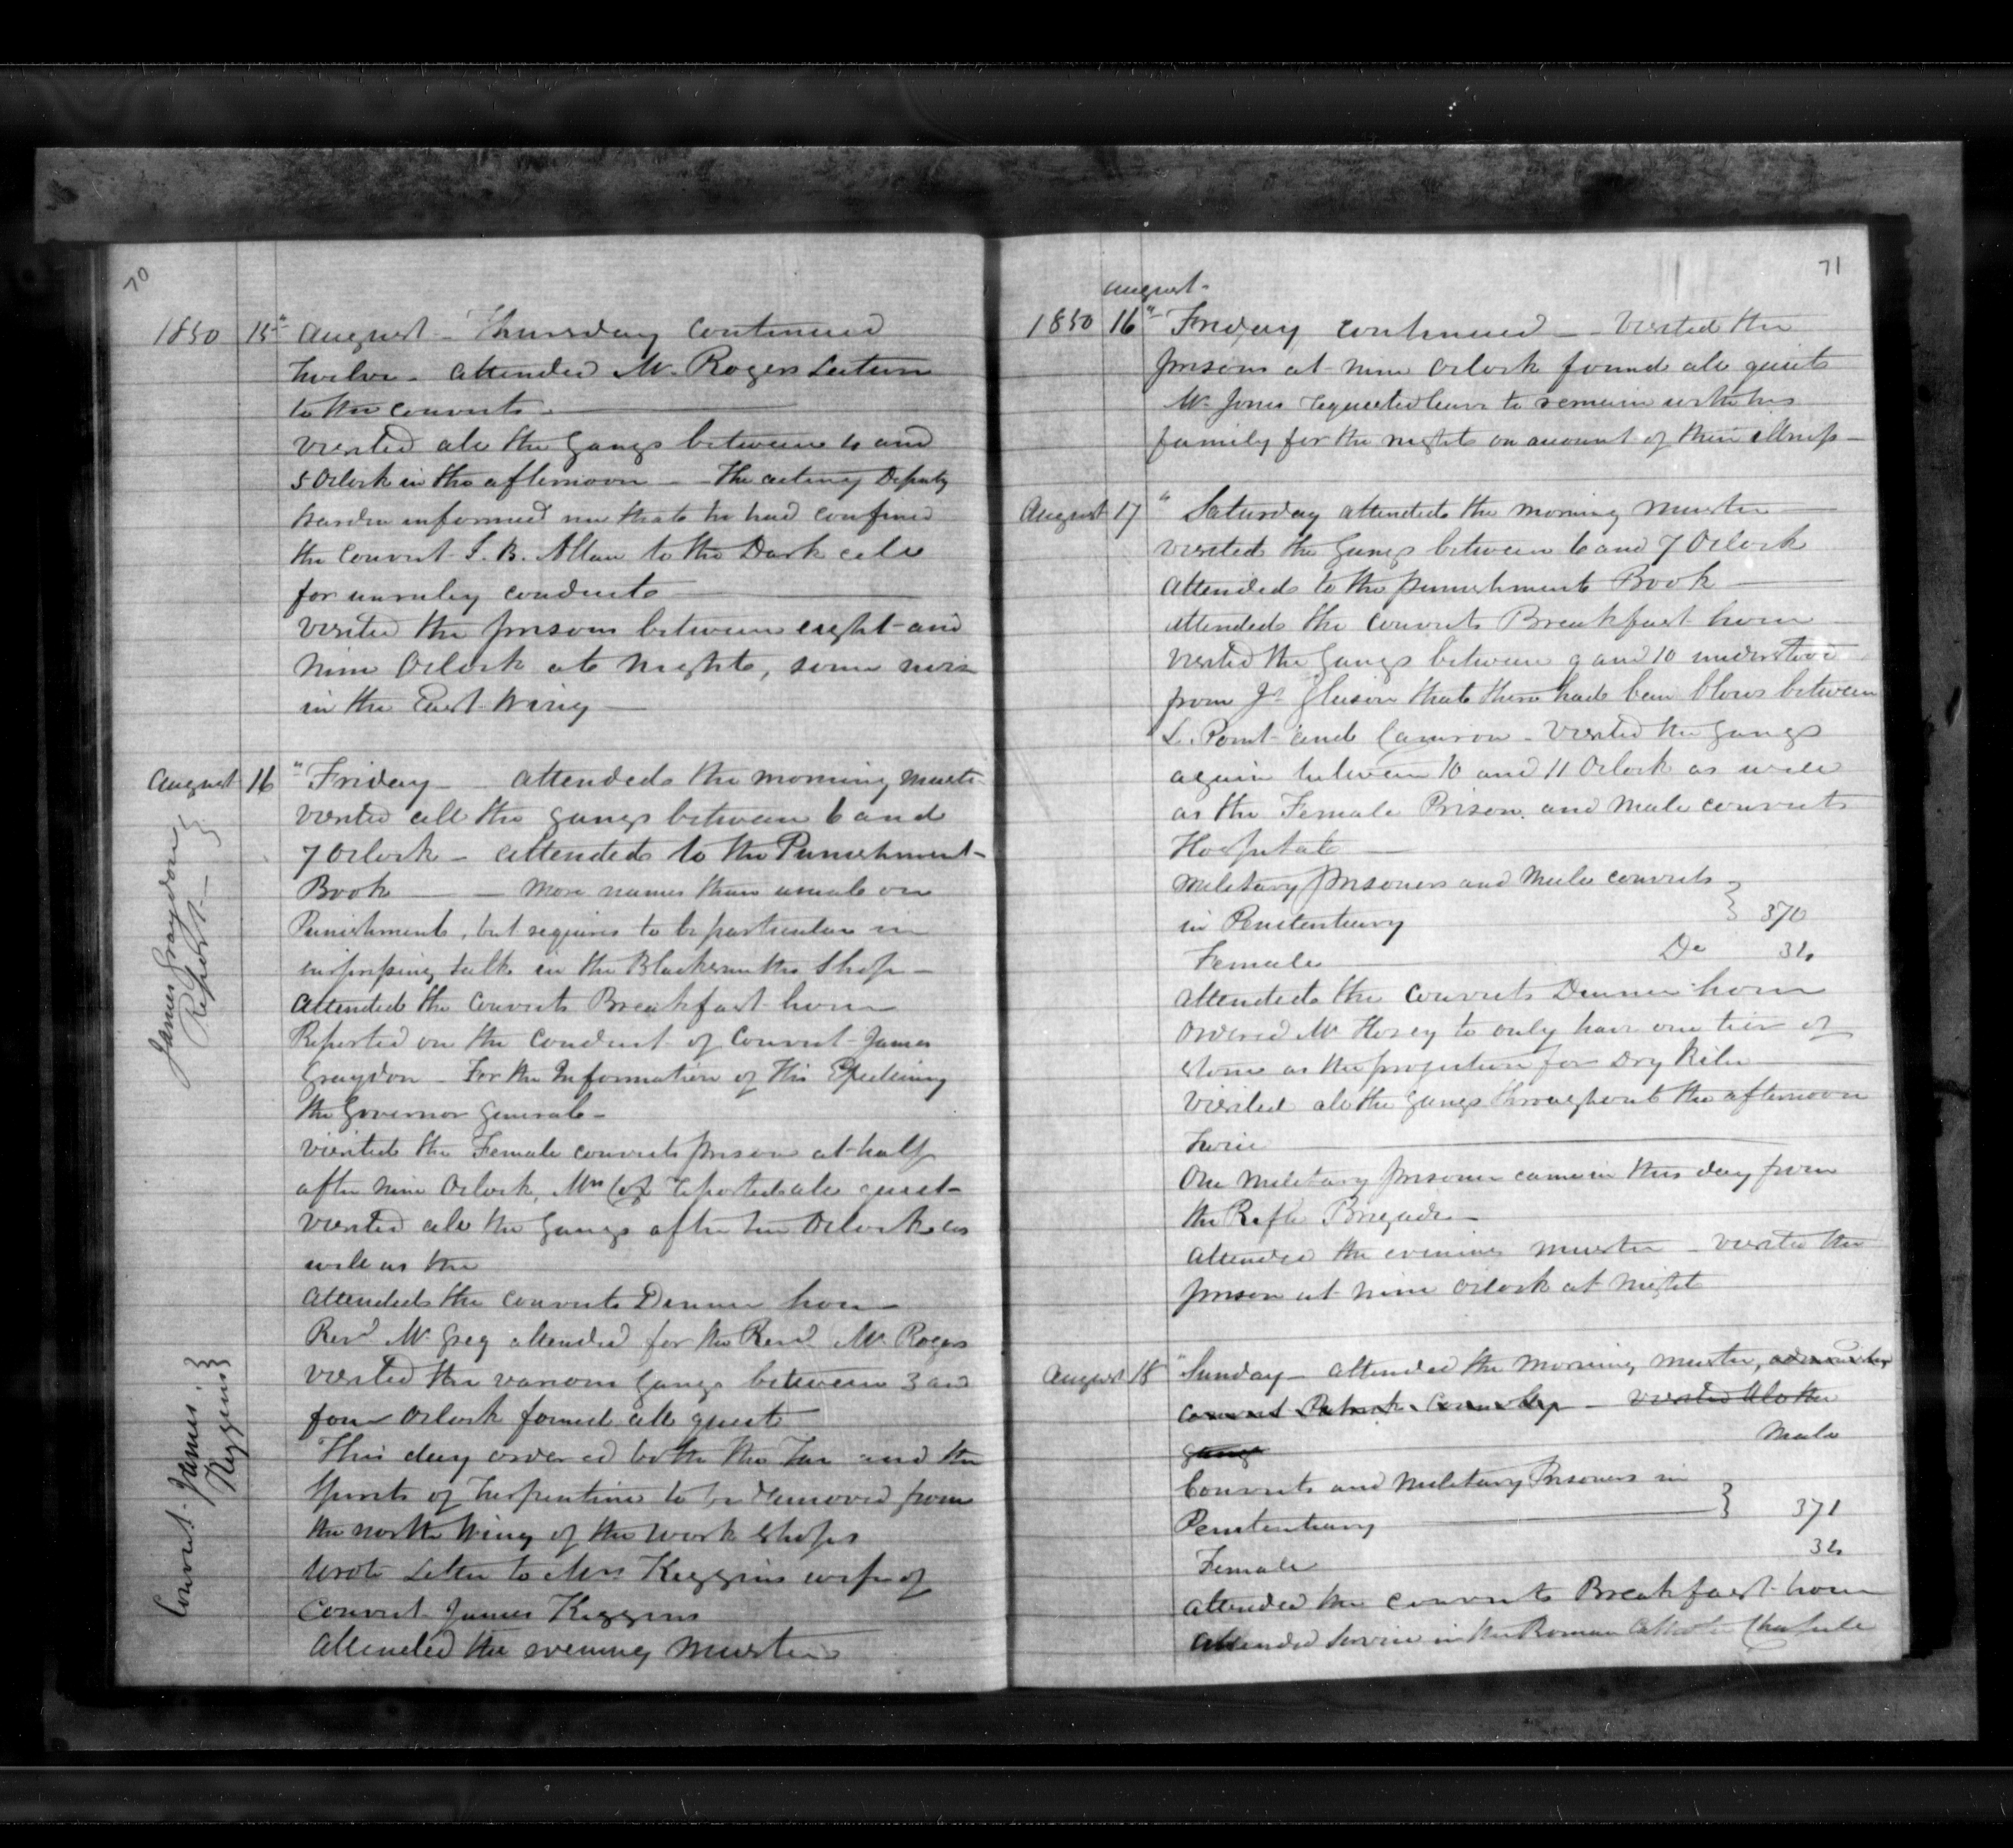 70
1850 15" August - Thursday continued
Twelve - attended Mr. Rogers Lecture
to the convicts -
visited all the Gangs between 4 and
5 Oclock in the afternoon - The acting Deputy
Warden informed me that he had confined
the convict S. B. Allan to the Dark cell
for unruley conduct
visited the prisons between eight and
nine Oclock at night, some noise
in the East Wing
August 16 "Friday - attended the morning muster
visited all the gangs between 6 and
7 Oclock - attended to the Punishment
Book - more names than usual on
Punishment, but requires to be particular in
talk in the Blacksmiths Shop -
attended the convicts Breakfast hour
Reported on the Conduct of Convict James
Graydon - For the Information of His Excellency
the Governor General -
visited the Female convicts prison at half
after nine Oclock, Mrs Cox reported all quiet -
visited all the Gangs after ten Oclock as
well as the
attended the convicts Dinner hour -
Revd. Mr Greg attended for the Revd. Mr. Rogers
visited the various Gangs between 3 and
four Oclock found all quiet
This day ordered both the Tar and the
Spirits of Turpentine to be removed from
the north Wing of the work shops
wrote Letter to Mrs Keggins wife of
Convict James Keggins
attended the evening muster
James Graydon
Report -
Convict James
Keggins
71
August -
1850 16" Friday continued - visited the
prisons at nine Oclock found all quiet
Mr. Jones requested leave to remain with his
family for the night on account of their illness -
August 17 " Saturday attended the morning muster
visited the Gangs between 6 and 7 Oclock
attended to the punishment Book
attended the convicts Breakfast hour
visited the Gangs between 9 and 10 understood
from Js. Gleeson that there had been blows between
L. Point and Cameron - visited the gangs
again between 10 and 11 Oclock as well
as the Female Prison and male convicts
Hospital
military prisoners and male convicts
in Penitentiary 370
Female Do
attended the convicts Dinner hour
ordered Mr Horsey to only have one tier of
stone as the projection for Dry Kiln
visited all the gangs throughout the afternoon
twice
One military prisoner came in this day from
the Rifle Brigade -
attended the evening muster - visited the
prison at nine Oclock at night
August 18 "Sunday - attended the morning muster,
convict Patrick - visited all the
gangs
male
Convicts and military Prisoners in
Penitentiary 371
Female
attended the convicts Breakfast hour
attended Service in the Roman Catholic Chapel